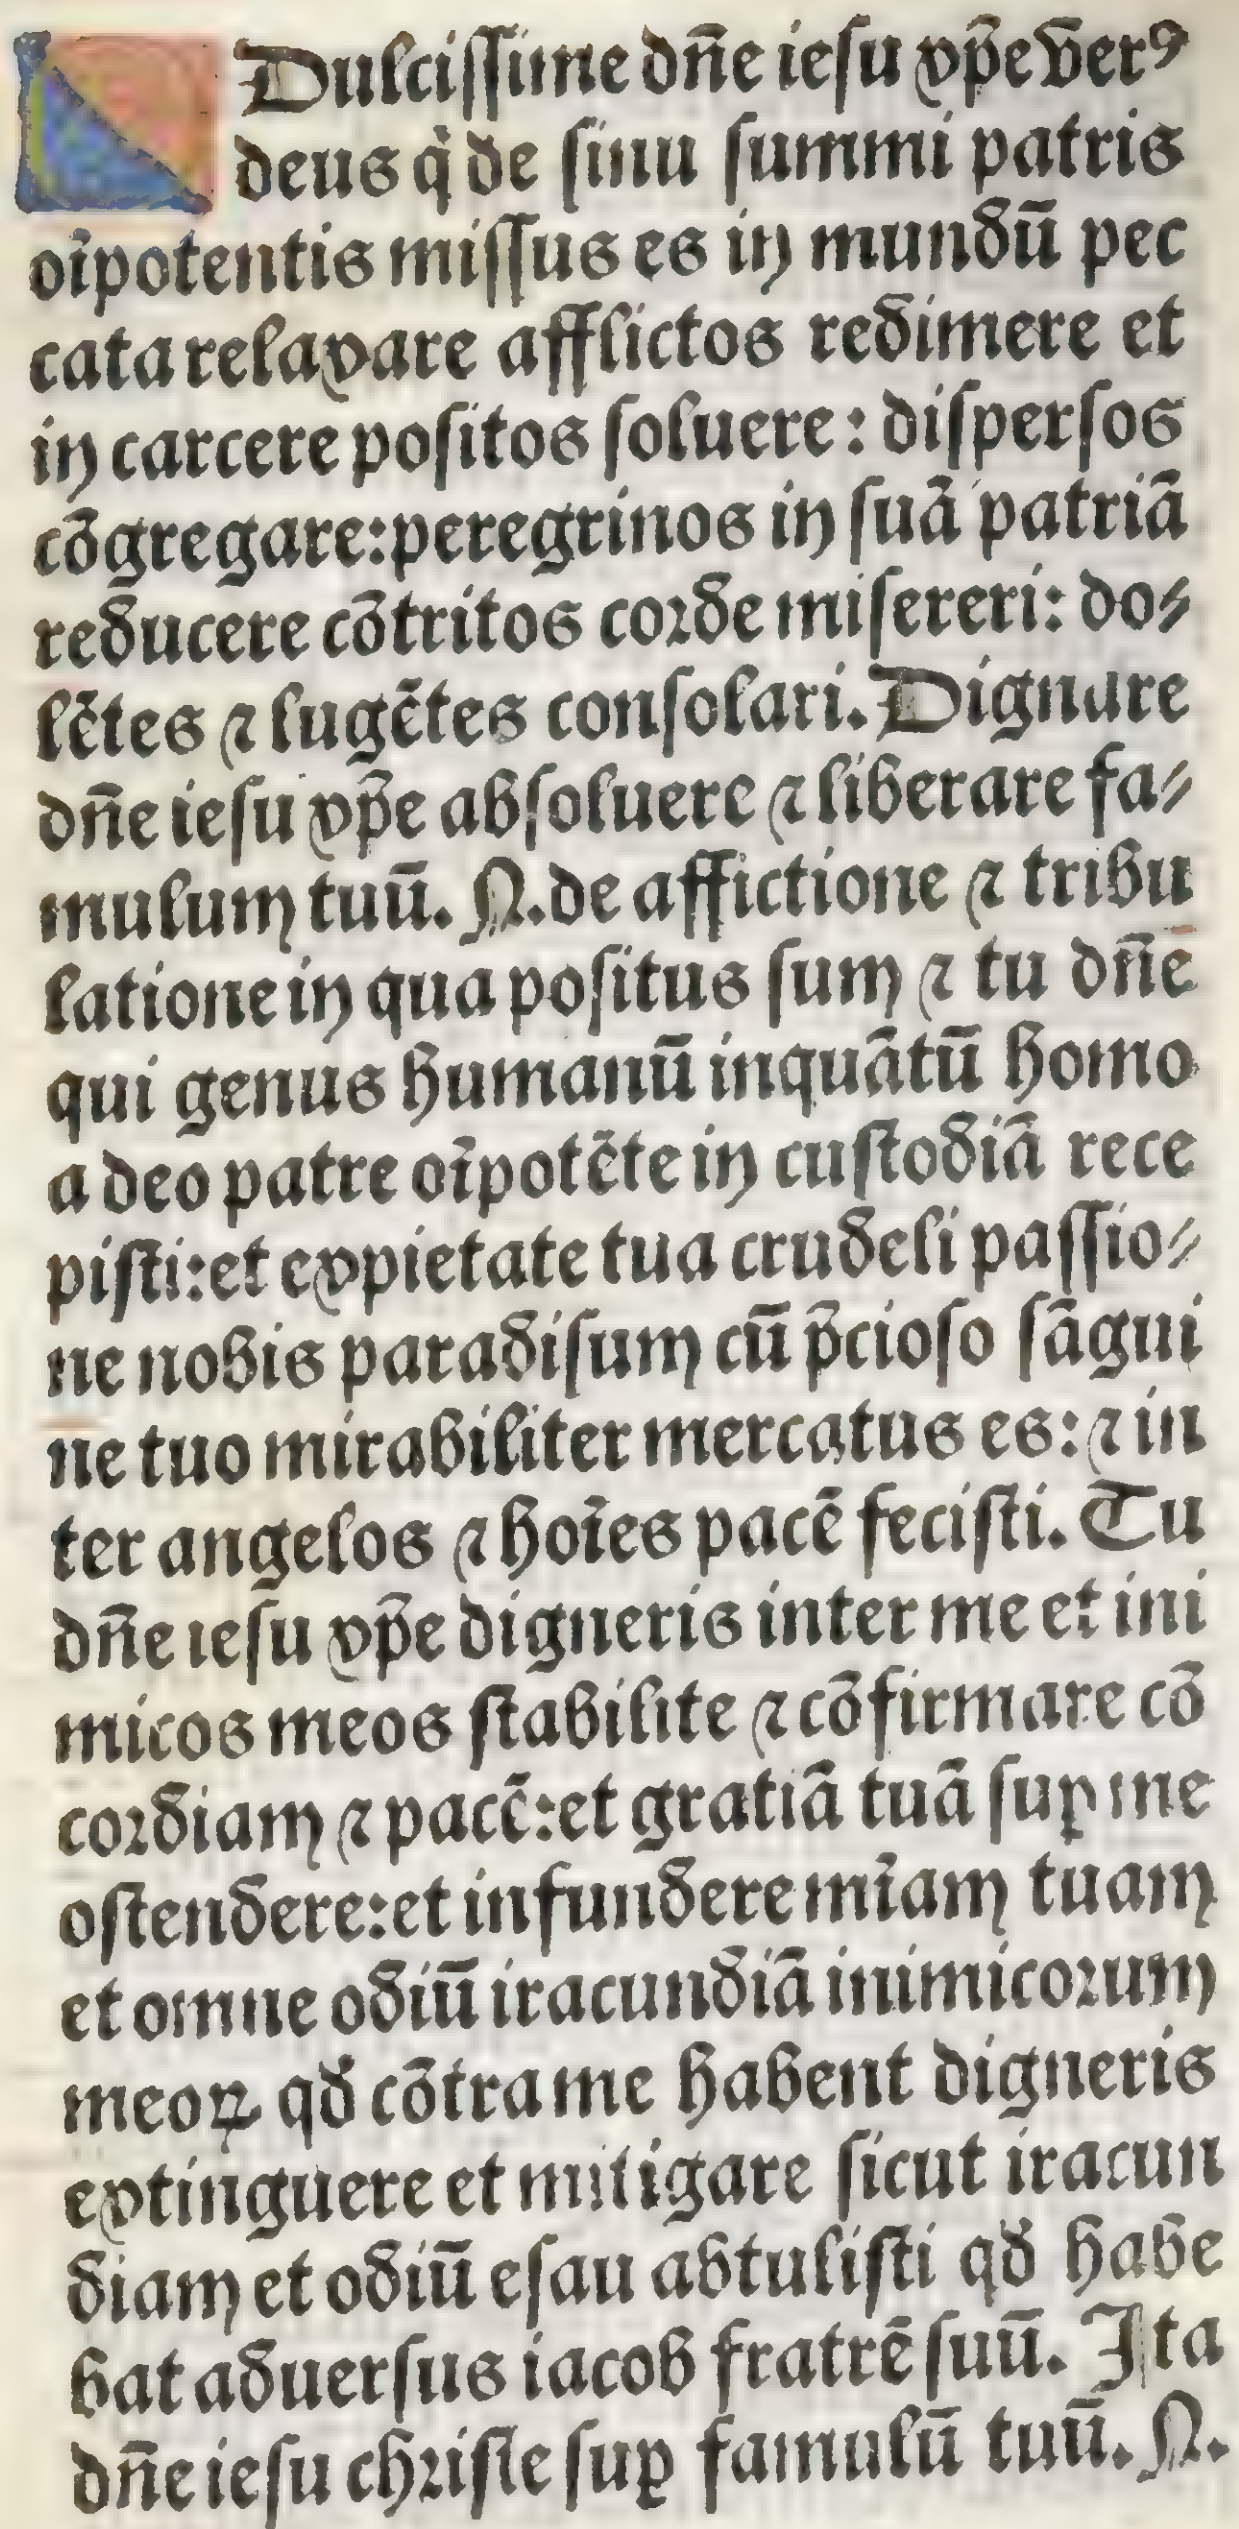 Dulcissime dñe iesu xp̃e ṽerꝰ
deus q̇ de sinu summi patris
oĩpotentis missus es in mundũ pec
cata relaxare afflictos redimere et
in carcere positos soluere: dispersos
cõgregare: peregrinos in suã patriã
reducere cõtritos corde misereri: do⸗
lẽtes ⁊ lugẽtes consolari. Dignare
dñe iesu xp̃e absoluere ⁊ liberare fa⸗
mulum tuũ. N. de affictione ⁊ tribu
latione in qua positus sum ⁊ tu dñe
qui genus humanũ inquãtũ homo
a deo patre oĩpotẽte in custodiã rece
pisti: et ex pietate tua crudeli passio⸗
ne nobis paradisum cũ p̃cioso sãgui
ne tuo mirabiliter mercatus es: ⁊ in
ter angelos ⁊ hoĩes pacẽ fecisti. Tu
dñe iesu xp̃e digneris inter me et ini
micos meos stabilite ⁊ cõfirmare cõ
cordiam ⁊ pacẽ: et gratiã tuã suꝑ me
ostendere: et infundere mĩam tuam
et omne odiũ iracundiã inimicorum
meoꝝ qđ cõtra me habent digneris
extinguere et mitigare sicut iracun
diam et odiũ esau abtulisti qđ habe
bat aduersus iacob fratrẽ suũ. Ita
dñe iesu christe suꝑ famulũ tuũ. N.